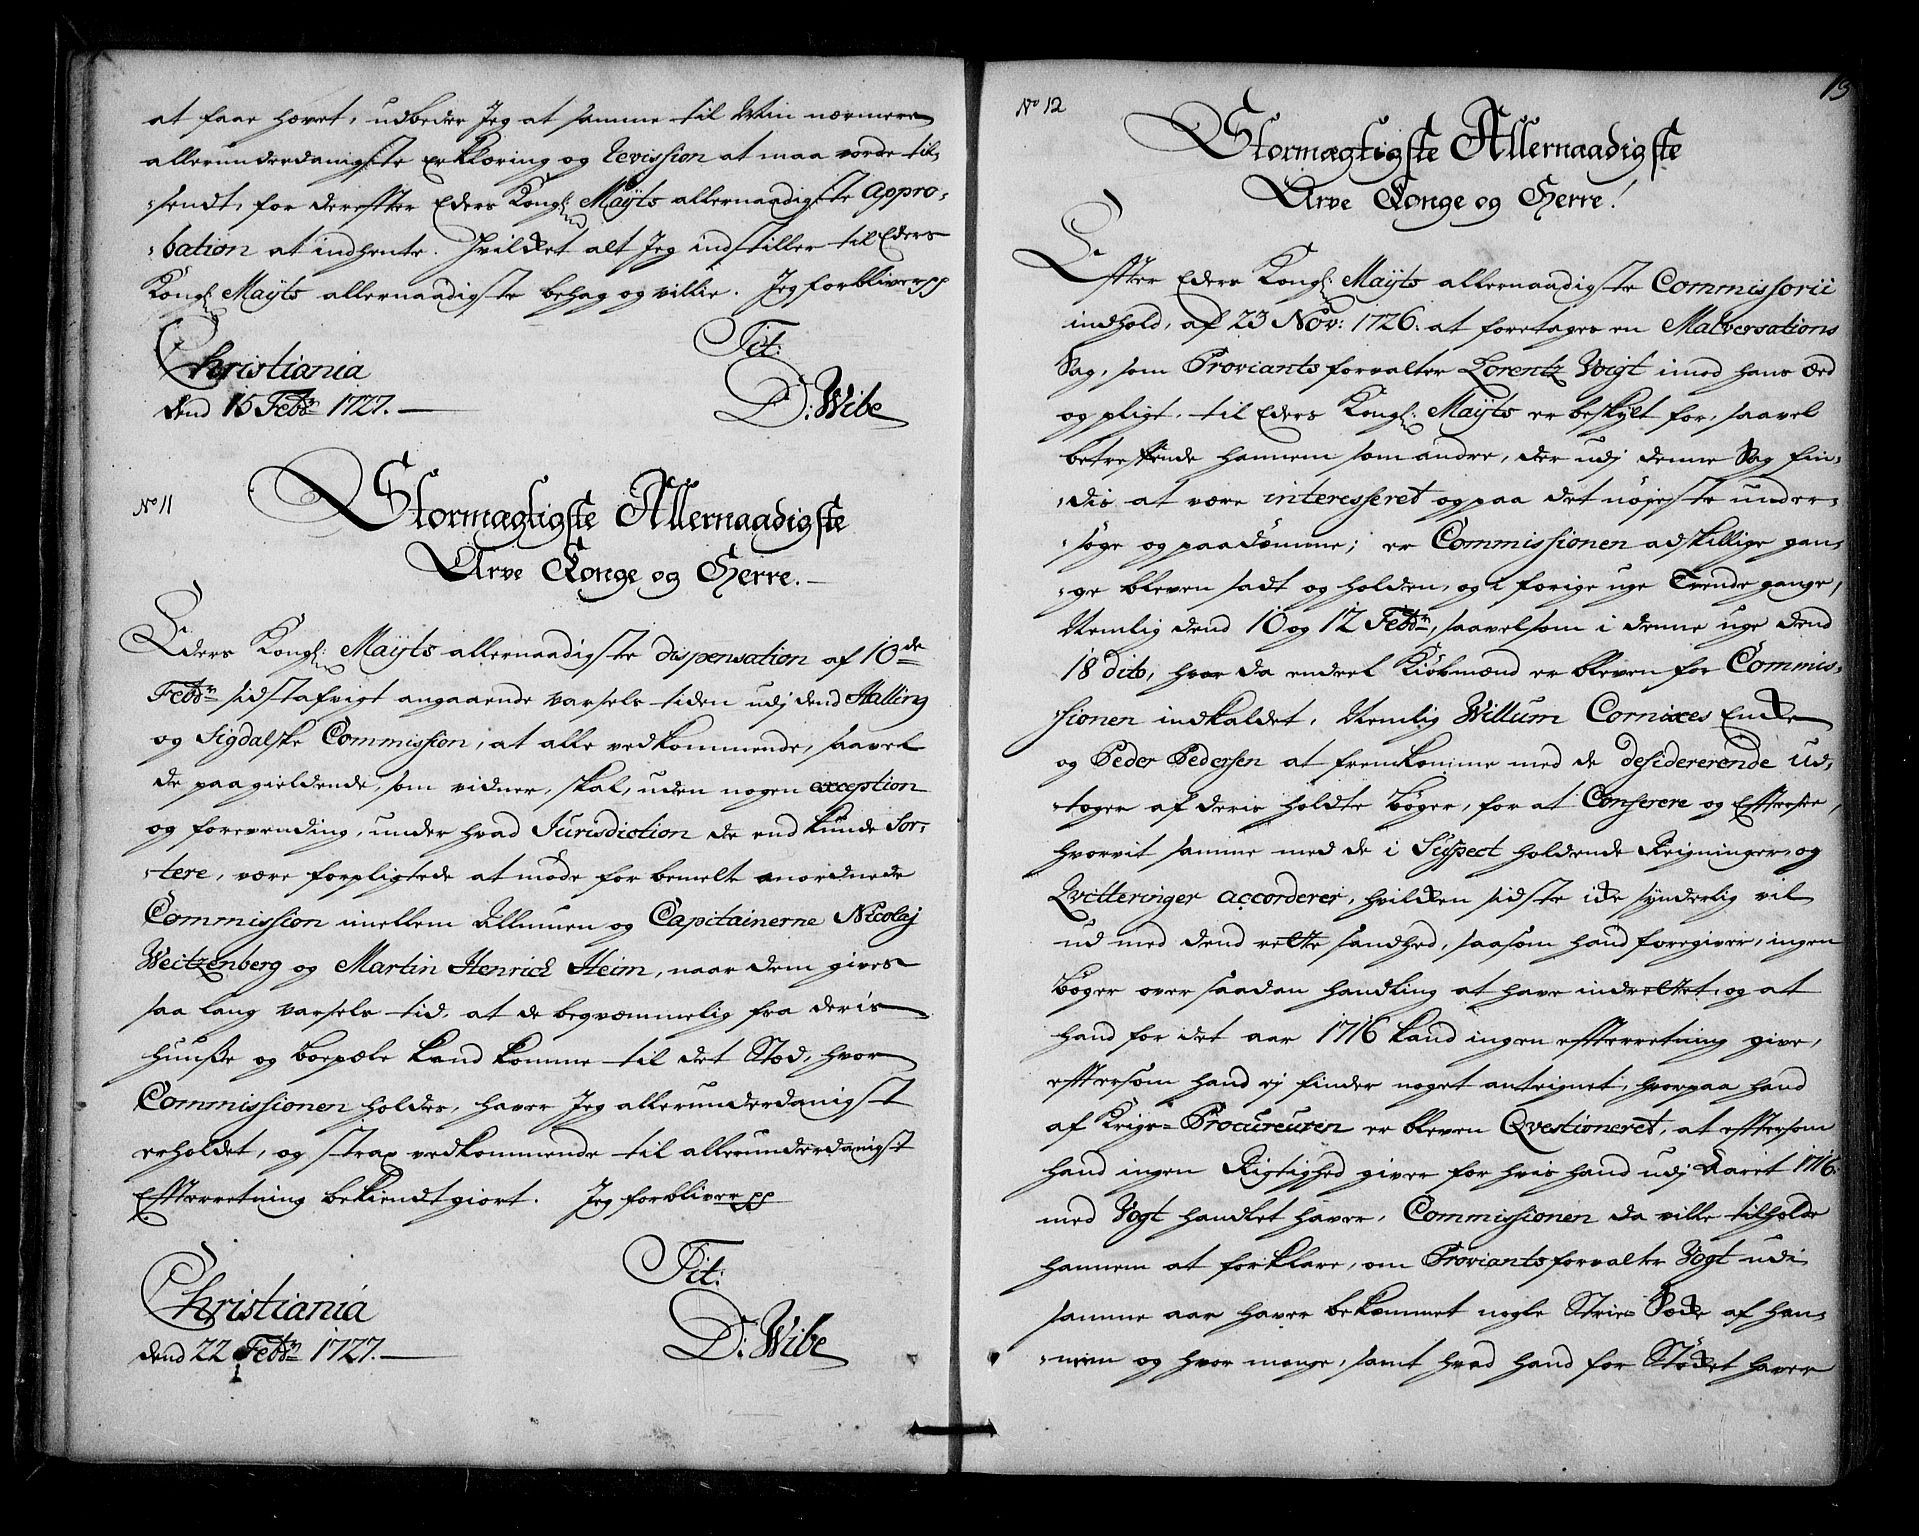 at faae hævet, udbeder Jeg at samme til Min nærmere
allerunderdanigste erklæring og Revission at maa vorde til-
-sendt, for derefter Eders Kongl: Mayts allernaadigste Appro-
-bation at indhente. Hvilket alt Jeg indstiller til Eders
Kongl: Mayts allernaadigste behag og villie. Jeg forbliver pp
Christiania
dend 15 Febr: 1727.
Tit:
D: Wibe
No 11
Stormægtigste Allernaadigste
Arve Konge og Herre.
Eders Kongl: Mayts allernaadigste dispensation af 10de
Febr: sidstafvigt angaaende varsels tiden udj dend Halling
og Sigdalske Commission, at alle vedkommende, saavel
de paagieldende, som vidner, skal, uden nogen exception
og forevending, under hvad Jurisdiction de end kunde Sor-
-tere, være forpligtede at møde for bemelte anordnede
Commission imellem Allmuen og Capitainerne Nicolaj
Weitzenberg og Martin Henrich Heim, naar dem gives
saa lang varsels tid, at de beqvæmmelig fra deris
huuse og boepæle kand komme til det Stæd, hvor
Commissionen holdes, haver Jeg allerunderdanigst
erholdet, og strax vedkommende til allerunderdanigst
Efterretning bekiendtgiort. Jeg forbliver pp
Christiania
dend 22 Febr: 1727.
Tit:
D: Wibe
13
No 12
Stormægtigste Allernaadigste
Arve Konge og Herre!
Efter Eders Kongl: Mayts allernaadigste Commissorii
indhold, af 23 Nov: 1726. at foretages en Malversations
Sag, som Proviantsforvalter Lorentz Voigt imod hans Æd
og pligt til Eders Kongl: Mayts er beskylt for, saavel
betreffende hannem som andre, der udj denne Sag fin-
-dis at være interesseret og paa det nøjeste under-
-søge og paadømme; er Commissionen adskillige gan-
-ge bleven sadt og holden, og i forige uge Trende gange,
Nemlig dend 10 og 12 Febr:, saavelsom i denne uge dend
18 dito, hvor da endeel Kiøbmænd er bleven for Commis-
-sionen indkaldet, Nemlig Willum Cornixes Enke
og Peder Pedersen at fremkomme med de desidererende ud-
-toger af deris holdte bøger, for at Conferere og Eftersee,
hvorvit samme med de i Suspect holdende Reigninger og
Qvitteringer accorderer, hvilken sidste icke synderlig vil
ud med dend rette sandhed, saasom hand foregiver, ingen
bøger over saadan handling at have indrettet, og at
hand for det aar 1716 kand ingen efterretning give,
eftersom hand ej finder noget anteignet, hvorpaa hand
af Krigs-Procureuren er bleven Qvestioneret, at eftersom
hand ingen Rigtighed giver for hvis hand udj Aaret 1716
med Vogt handlet haver, Commissionen da ville tilholde
hannem at forklare, om Proviantsforvalter Vogt udi
samme aar haver bekommet nogle Strie Sække af han-
-nem og hvor mange, samt hvad hand for Støcket haver